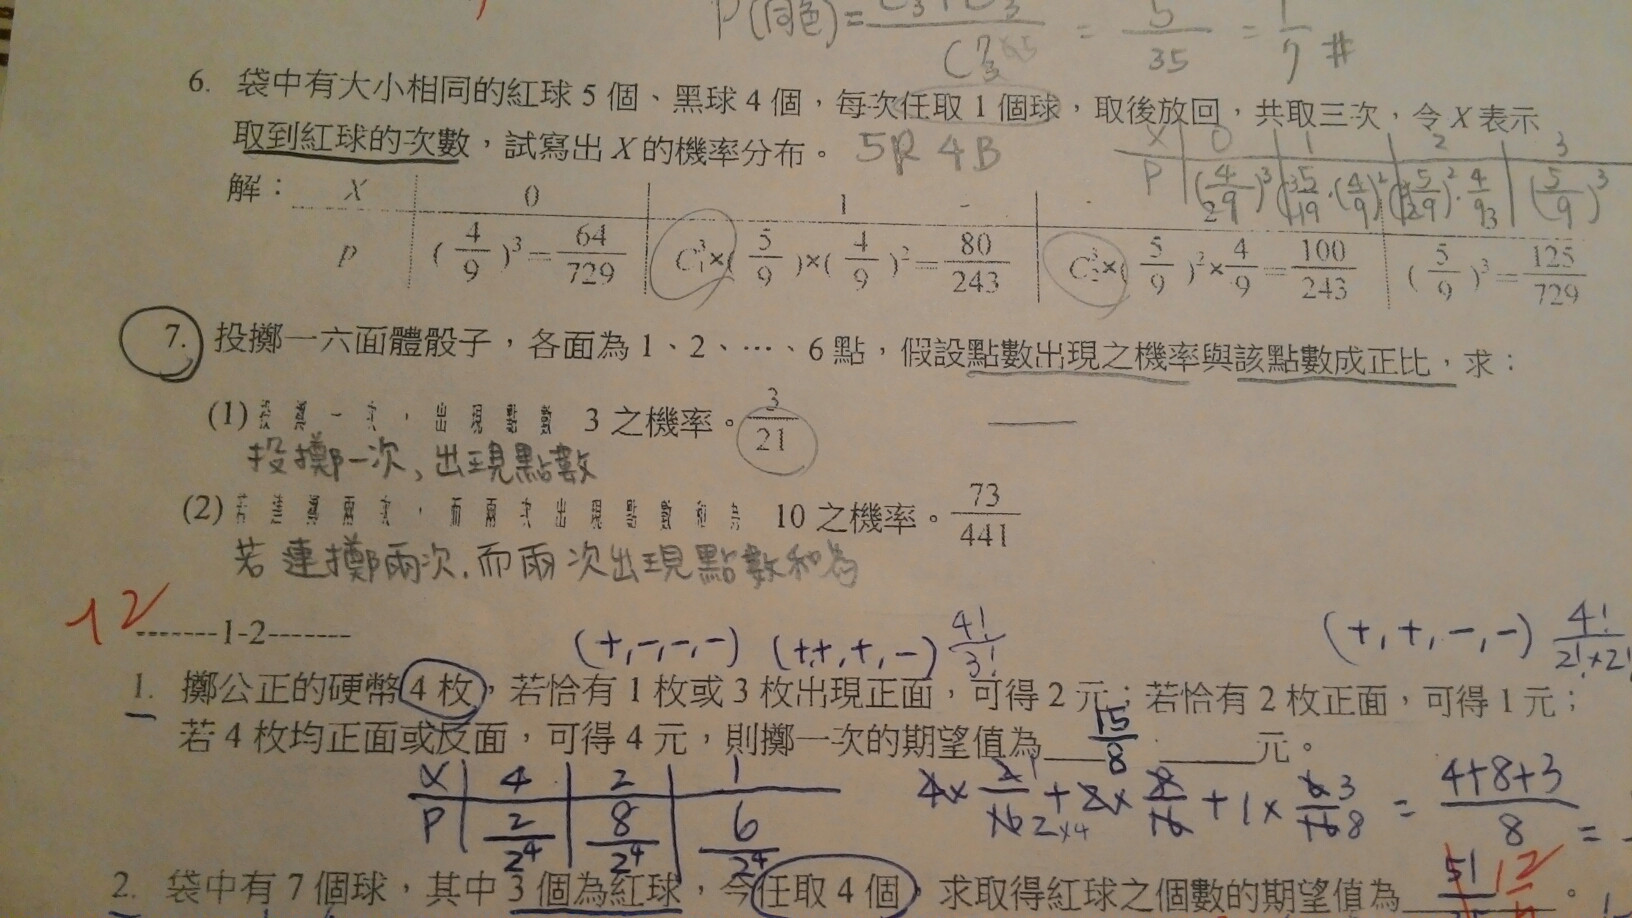 P(同色)= = 5/35 = 1/7 #
C 7 3
6. 袋中有大小相同的紅球 5 個、黑球 4 個，每次任取 1 個球，取後放回，共取三次，令 X 表示
取到紅球的次數，試寫出 X 的機率分布。 5R 4B
X 0 1 2 3
P (4/9)^3 (5/9)·(4/9)^2 (5/9)^2·4/9 (5/9)^3
解： X 0 1
P (4/9)^3=64/729 C^3_1×(5/9)×(4/9)^2=80/243 C^3_2×(5/9)^2×4/9=100/243 (5/9)^3=125/729
7. 投擲一六面體骰子，各面為 1、2、…、6 點，假設點數出現之機率與該點數成正比，求：
(1) 投擲一次，出現點數 3 之機率。3/21
投擲一次，出現點數
(2) 若連擲兩次，而兩次出現點數和為 10 之機率。73/441
若連擲兩次，而兩次出現點數和為
12
-------1-2-------
(+,-,-,-) (+,+,+,-) 4!/3! (+,+,-,-) 4!/2!×2!
1. 擲公正的硬幣 4 枚，若恰有 1 枚或 3 枚出現正面，可得 2 元；若恰有 2 枚正面，可得 1 元；
若 4 枚均正面或反面，可得 4 元，則擲一次的期望值為 15/8 元。
X 4 2 1
P 2/2^4 8/2^4 6/2^4
4×2/16+2×8/16+1×6/16 = 4+8+3/8 =
2. 袋中有 7 個球，其中 3 個為紅球，今任取 4 個，求取得紅球之個數的期望值為 12 。